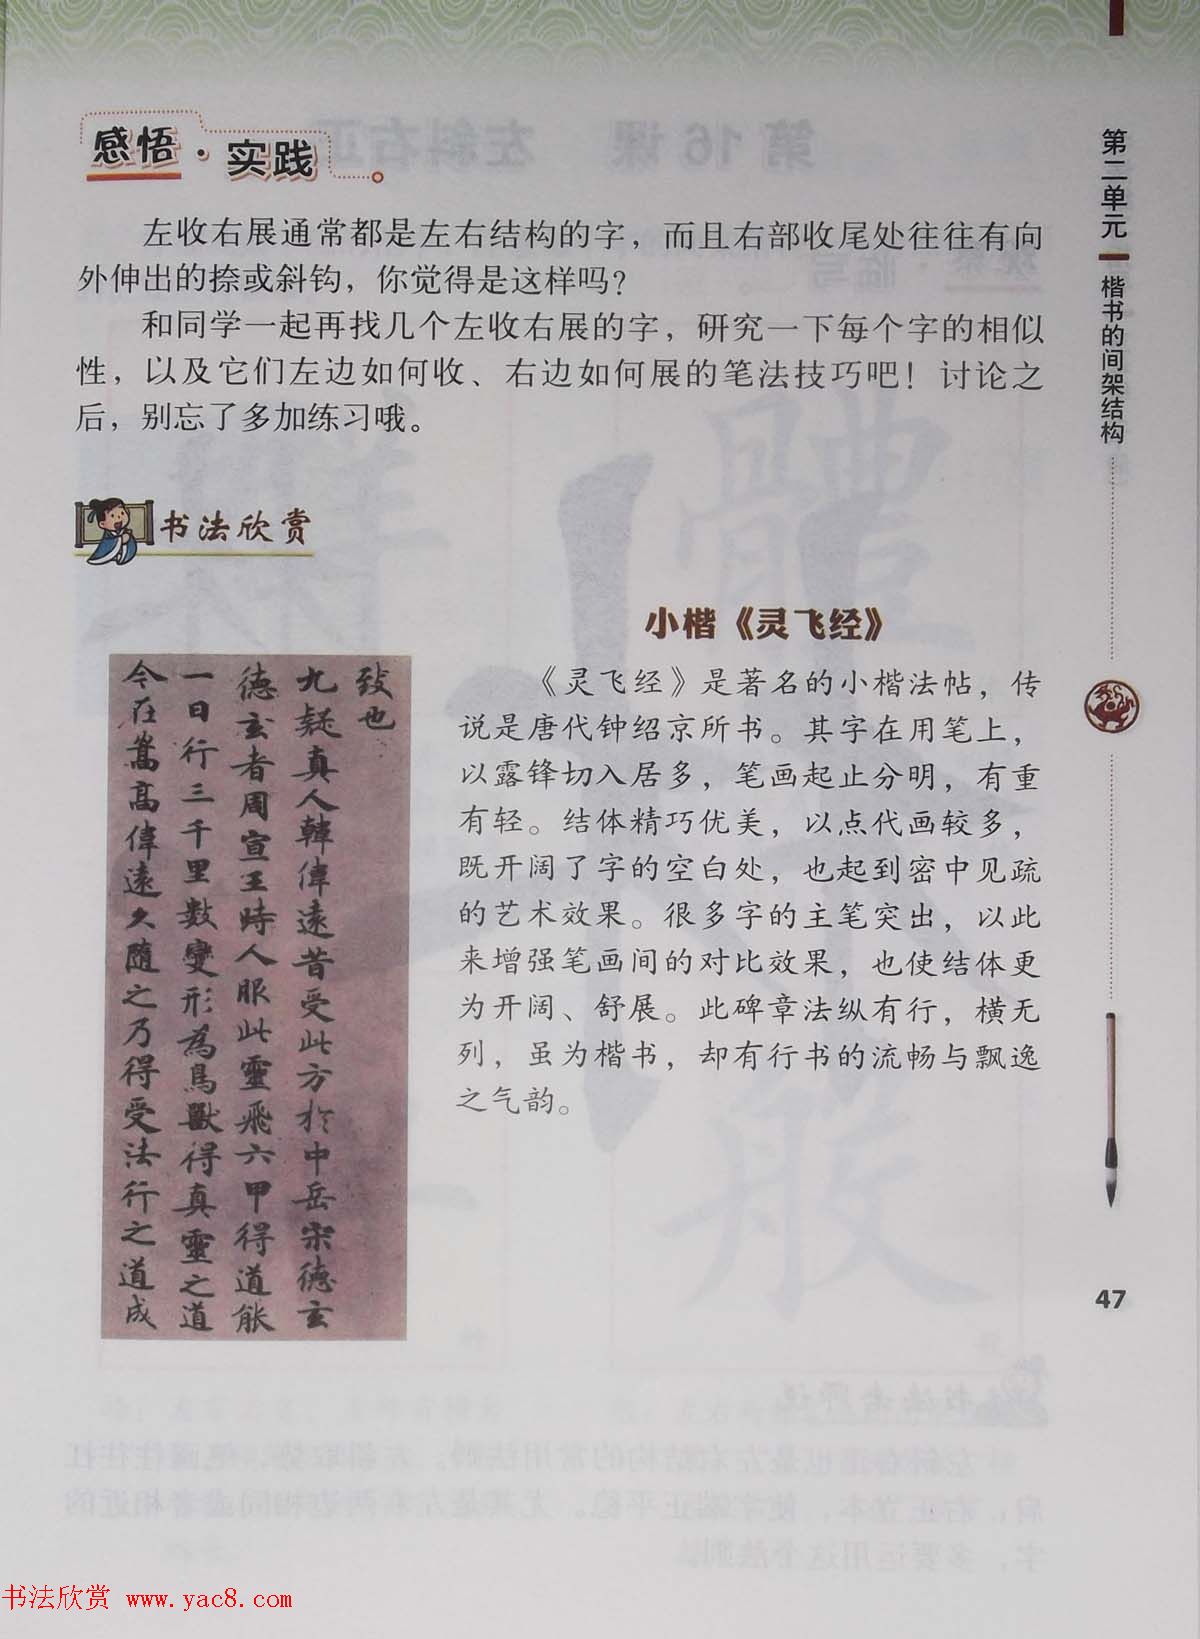 感悟·实践
左收右展通常都是左右结构的字，而且右部收尾处往往有向
外伸出的捺或斜钩，你觉得是这样吗？
和同学一起再找几个左收右展的字，研究一下每个字的相似
性，以及它们左边如何收、右边如何展的笔法技巧吧！讨论之
后，别忘了多加练习哦。
书法欣赏
小楷《灵飞经》
《灵飞经》是著名的小楷法帖，传
说是唐代钟绍京所书。其字在用笔上，
以露锋切入居多，笔画起止分明，有重
有轻。结体精巧优美，以点代画较多，
既开阔了字的空白处，也起到密中见疏
的艺术效果。很多字的主笔突出，以此
来增强笔画间的对比效果，也使结体更
为开阔、舒展。此碑章法纵有行，横无
列，虽为楷书，却有行书的流畅与飘逸
之气韵。
致也
九疑真人韓偉遠昔受此方於中岳宋德玄
德玄者周宣王時人服此靈飛六甲得道能
一日行三千里數變形為鳥獸得真靈之道
今在嵩高偉遠久隨之乃得受法行之道成
第二单元
楷书的间架结构
47
书法欣赏 www.yac8.com